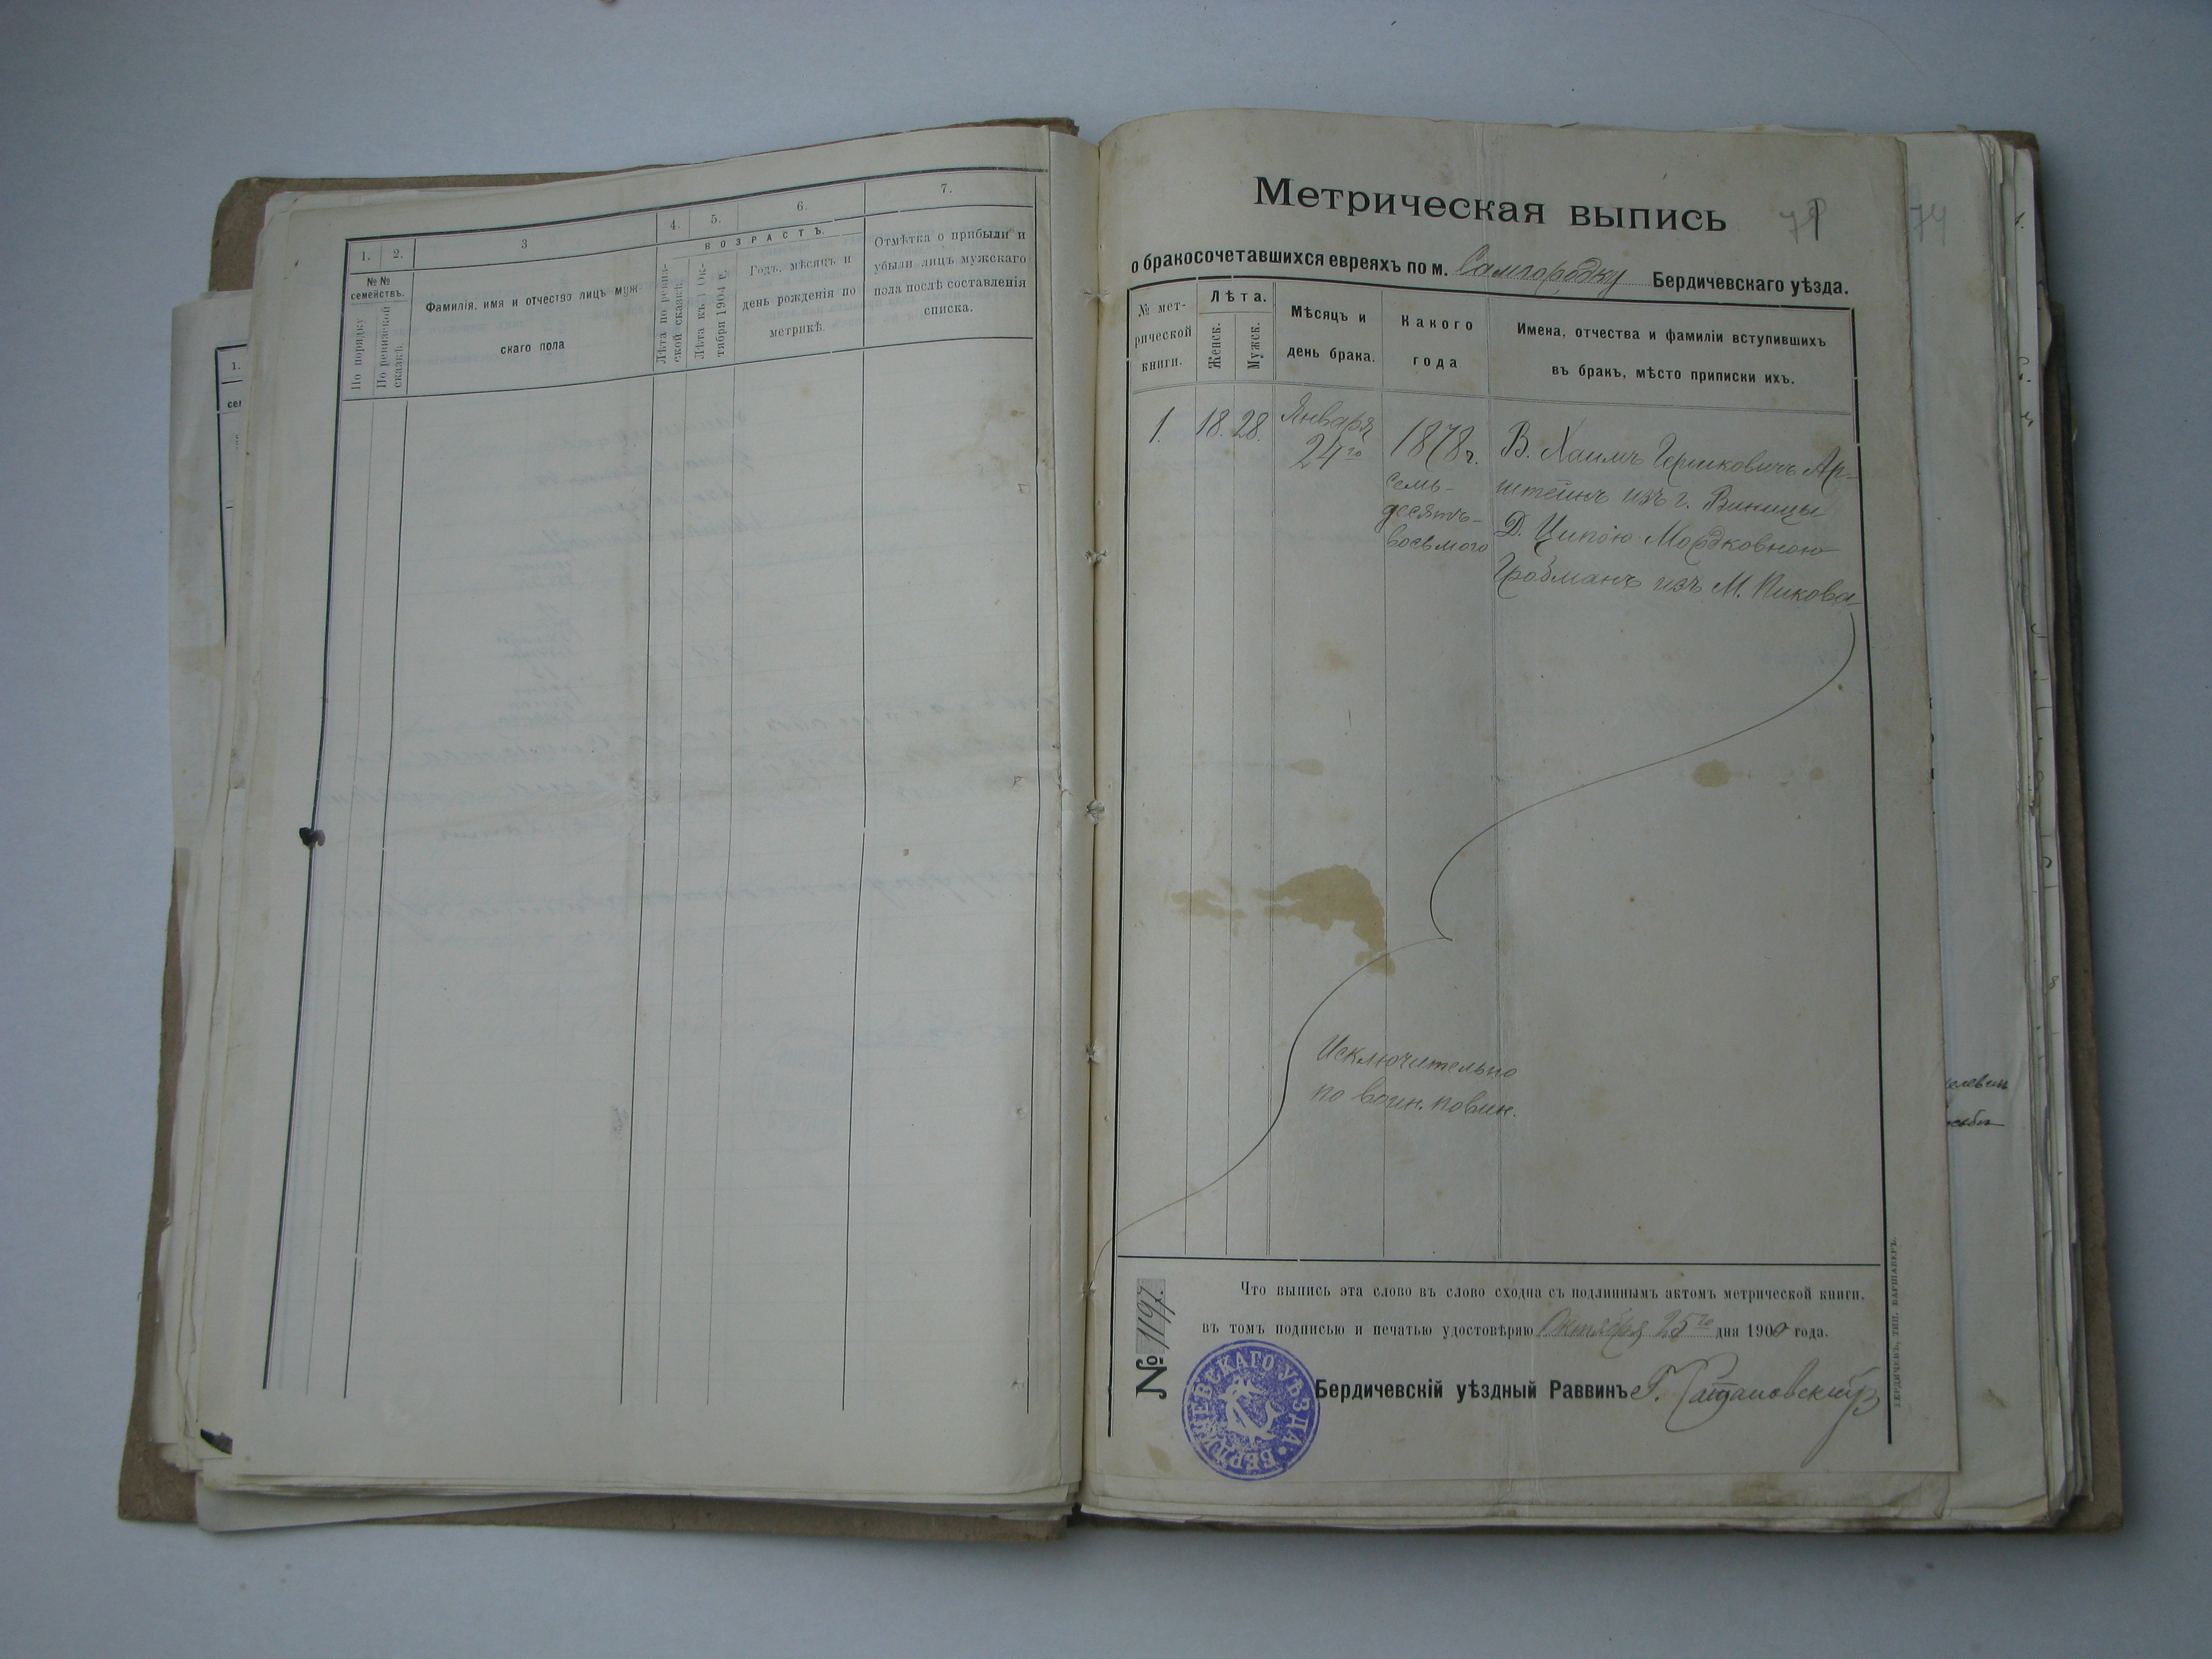 1.
2.
3
4.
5.
6.
7.
№№
семействъ.
По порядку
По ревизской
сказкѣ.
Фамилія, имя и отчество лицъ муж-
скаго пола
ВОЗРАСТЪ.
Лѣта по ревиз-
ской сказкѣ.
Лѣта къ 1 Ок-
тября 1904 г.
Годъ, мѣсяцъ и
день рожденія по
метрикѣ.
Отмѣтка о прибыли и
убыли лицъ мужскаго
пола послѣ составленія
списка.
1.
Метрическая выпись
74
о бракосочетавшихся евреяхъ по м. Самгородку Бердичевскаго уѣзда.
№ мет-
рической
книги.
Лѣта.
Женск.
Мужск.
Мѣсяцъ и
день брака.
Какого
года
Имена, отчества и фамиліи вступившихъ
въ бракъ, мѣсто приписки ихъ.
1.
18.
28.
Января
24го
1878 г.
семь-
десятъ-
восьмого
В. Хаимъ Гершковичъ Ар-
штейнъ изъ г. Виницы
Д. Ципою Мордковною
Гробманъ изъ М. Пикова
Исключительно
по воин. повин.
Что выпись эта слово въ слово сходна съ подлиннымъ актомъ метрической книги,
въ томъ подписью и печатью удостовѣряю Октября 25го дня 1900 года.
№ 1197.
Бердичевскій уѣздный Раввинъ
БЕРДИЧЕВСКАГО УѢЗДА
БЕРДИЧЕВЪ, ТИП. ВАРШАВЕРЪ.